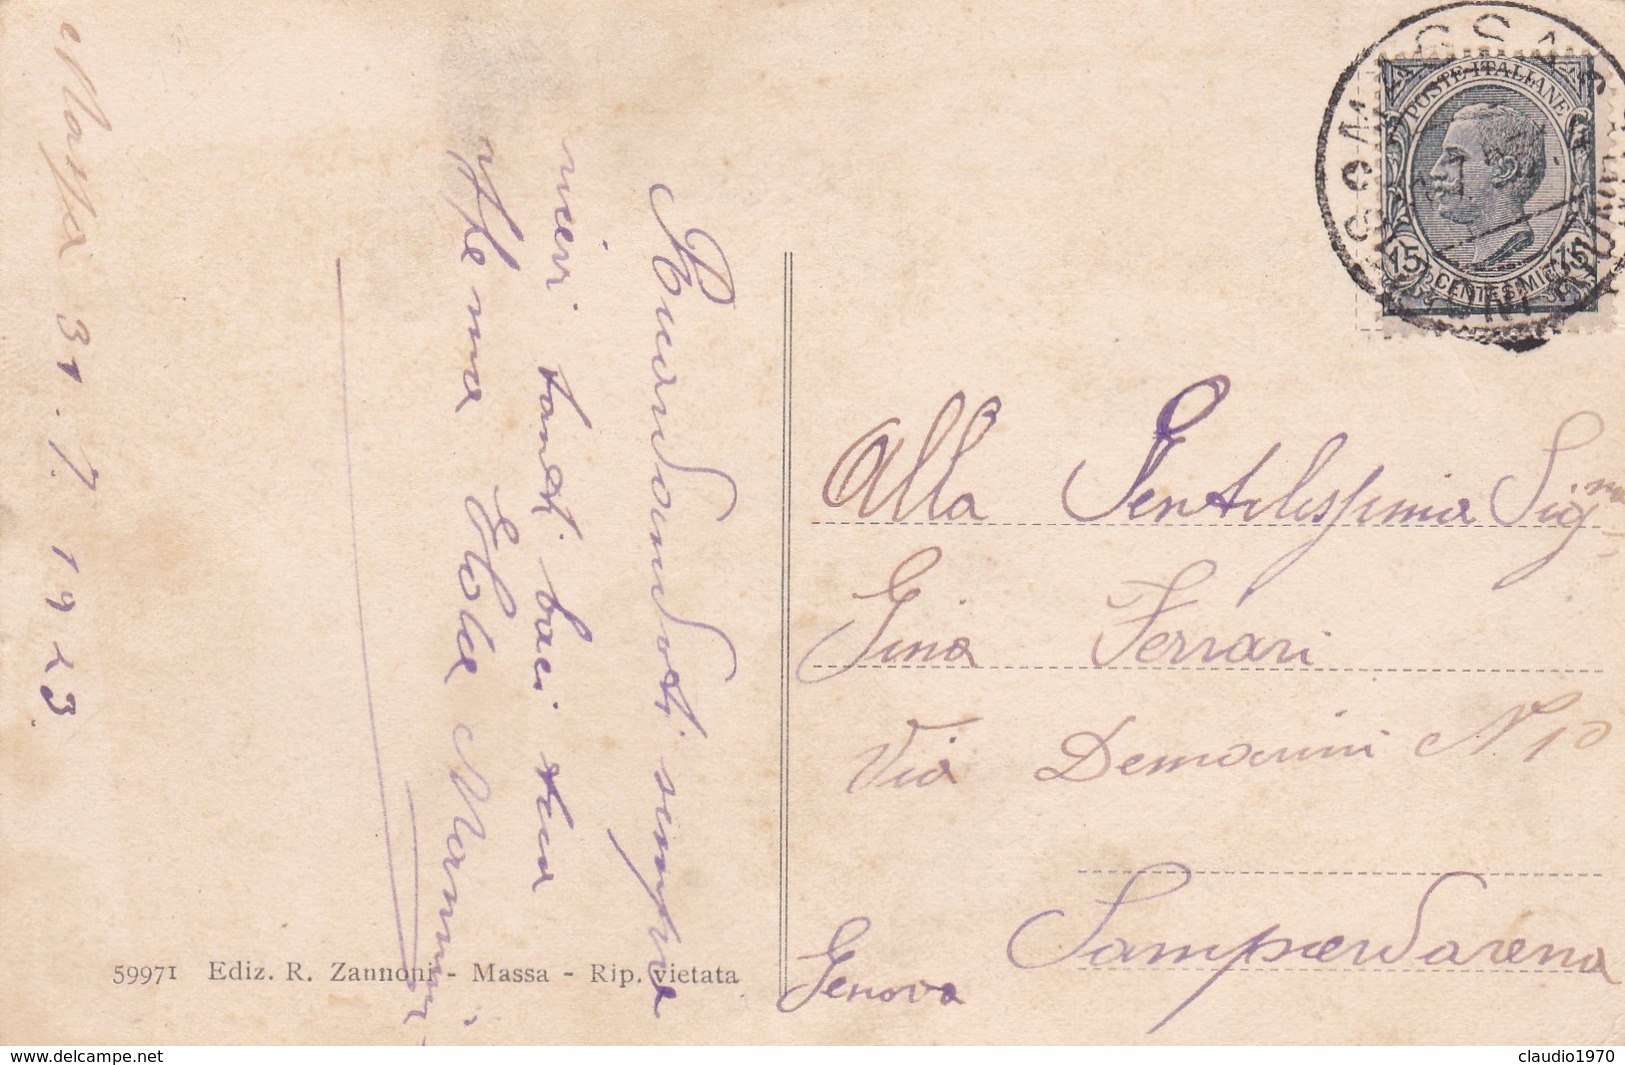 Massa 31. 7. 1923
Ricordandoti sempre
invii tanti baci tua
aff.ma Elda Mannini
Alla Gentilissima Sig.na
Gina Ferrari
Via Demarini N 10
Sampierdarena
Genova
POSTE ITALIANE
15 CENTESIMI 15
59971 Ediz. R. Zannoni - Massa - Rip. vietata
www.delcampe.net
claudio1970